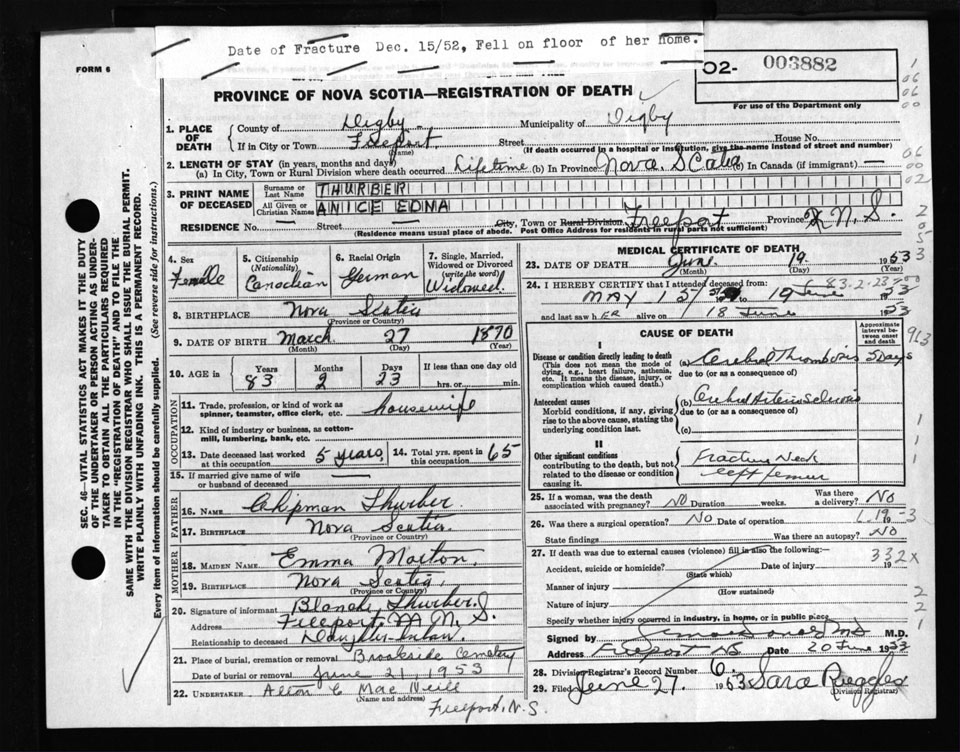 Date of Fracture Dec. 15/52, Fell on floor of her home.
FORM 6
O2- 003882
PROVINCE OF NOVA SCOTIA—REGISTRATION OF DEATH
For use of the Department only
1. PLACE OF DEATH
County of Digby Municipality of Digby
If in City or Town Freeport Street House No.
(Name) (If death occurred in a hospital or institution, give the name instead of street and number)
2. LENGTH OF STAY (in years, months and days)
(a) In City, Town or Rural Division where death occurred Lifetime (b) In Province Nova Scotia (c) In Canada (if immigrant) —
3. PRINT NAME OF DECEASED
Surname or Last Name THURBER
All Given or Christian Names ANICE EDNA
RESIDENCE No. — Street — City, Town or Rural Division Freeport Province N.S.
(Residence means usual place of abode. Post Office Address for residents in rural parts not sufficient)
4. Sex Female
5. Citizenship (Nationality) Canadian
6. Racial Origin German
7. Single, Married, Widowed or Divorced (write the word) Widowed
8. BIRTHPLACE Nova Scotia
(Province or Country)
9. DATE OF BIRTH March 27 1870
(Month) (Day) (Year)
10. AGE in Years 83 Months 2 Days 23 If less than one day old hrs. or min.
OCCUPATION
11. Trade, profession, or kind of work as spinner, teamster, office clerk, etc. housewife
12. Kind of industry or business, as cotton-mill, lumbering, bank, etc.
13. Date deceased last worked at this occupation 5 years
14. Total yrs. spent in this occupation 65
15. If married give name of wife or husband of deceased
FATHER
16. NAME Chipman Thurber
17. BIRTHPLACE Nova Scotia
(Province or Country)
MOTHER
18. MAIDEN NAME Emma Morton
19. BIRTHPLACE Nova Scotia
(Province or Country)
20. Signature of informant Blanche Thurber
Address Freeport N.S.
Relationship to deceased Daughter-inlaw
21. Place of burial, cremation or removal Brookside Cemetery
Date of burial or removal June 21, 1953
22. UNDERTAKER Allon C Mac Neill
(Name and address)
Freeport, N.S.
MEDICAL CERTIFICATE OF DEATH
23. DATE OF DEATH June 19 1953
(Month) (Day) (Year)
24. I HEREBY CERTIFY that I attended deceased from
MAY 15 19 June 1953
and last saw hER alive on 18 June 1953
CAUSE OF DEATH
Approximate interval between onset and death
I
Disease or condition directly leading to death
(This does not mean the mode of dying, e.g., heart failure, asthenia, etc. It means the disease, injury, or complication which caused death.)
(a) Cerebral Thrombosis 5 Days
due to (or as a consequence of)
Antecedent causes
Morbid conditions, if any, giving rise to the above cause, stating the underlying condition last.
(b) Cerebral Arteriosclerosis
due to (or as a consequence of)
(c)
II
Other significant conditions
contributing to the death, but not related to the disease or condition causing it.
Fracture Neck
Left femur
25. If a woman, was the death associated with pregnancy? NO Duration weeks. Was there a delivery? No
26. Was there a surgical operation? No Date of operation 19
State findings Was there an autopsy? NO
27. If death was due to external causes (violence) fill in also the following:—
332x
Accident, suicide or homicide? Date of injury 19
(State which)
Manner of injury
(How sustained)
Nature of injury
Specify whether injury occurred in industry, in home, or in public place
Signed by M.D.
Address Freeport NS Date 20 June 1953
28. Division Registrar's Record Number 6
29. Filed June 27. 1953 Sara Ruggles
(Division Registrar)
SEC. 46—VITAL STATISTICS ACT MAKES IT THE DUTY OF THE UNDERTAKER OR PERSON ACTING AS UNDERTAKER TO OBTAIN ALL THE PARTICULARS REQUIRED IN THE "REGISTRATION OF DEATH" AND TO FILE THE SAME WITH THE DIVISION REGISTRAR WHO SHALL ISSUE THE BURIAL PERMIT.
WRITE PLAINLY WITH UNFADING INK. THIS IS A PERMANENT RECORD.
Every item of information should be carefully supplied. (See reverse side for instructions.)